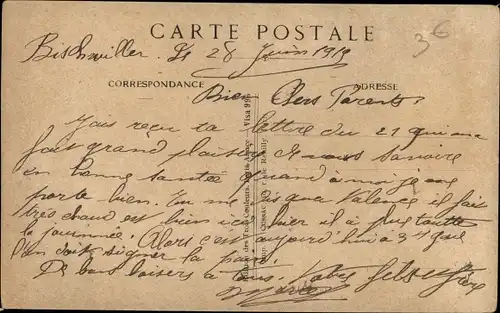 CARTE POSTALE
3€
Bischwiller Le 28 Juin 1919
CORRESPONDANCE
ADRESSE
Bien Chers Parents
J'ais reçu ta lettre du 21 qui ma
fait grand plaisir de vous savoire
en bonne santée quand à moi je me
porte bien. Tu me dis que Valence il fait
très chaud est bien ici hier il a plu toutte
la journnée. Alors c'est aujourd'hui à 3h que
l'on doit signer la paix.
De bons baisers à tous.
Visa 99